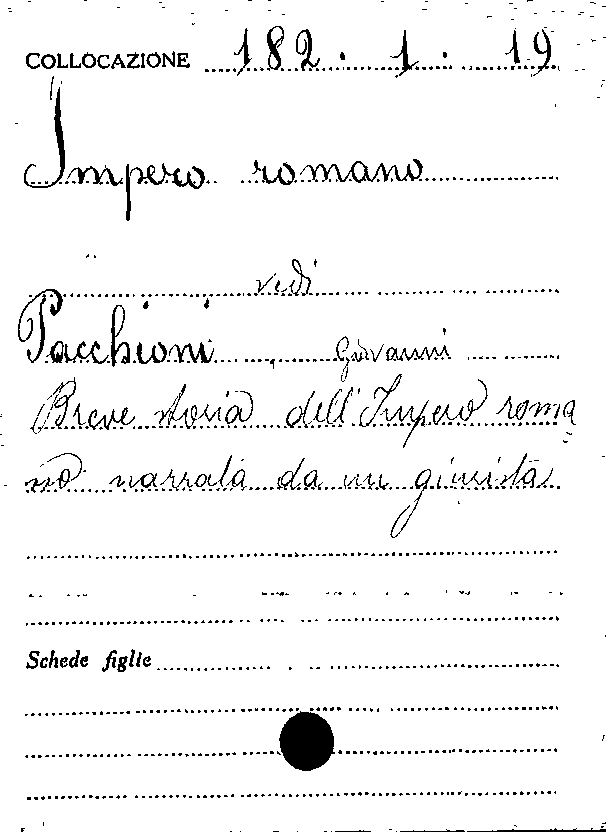 COLLOCAZIONE 182. 1. 19
Impero romano
vedi
Pacchioni, Giovanni
Breve storia dell'Impero roma=
no narrata da un giurista
Schede figlie